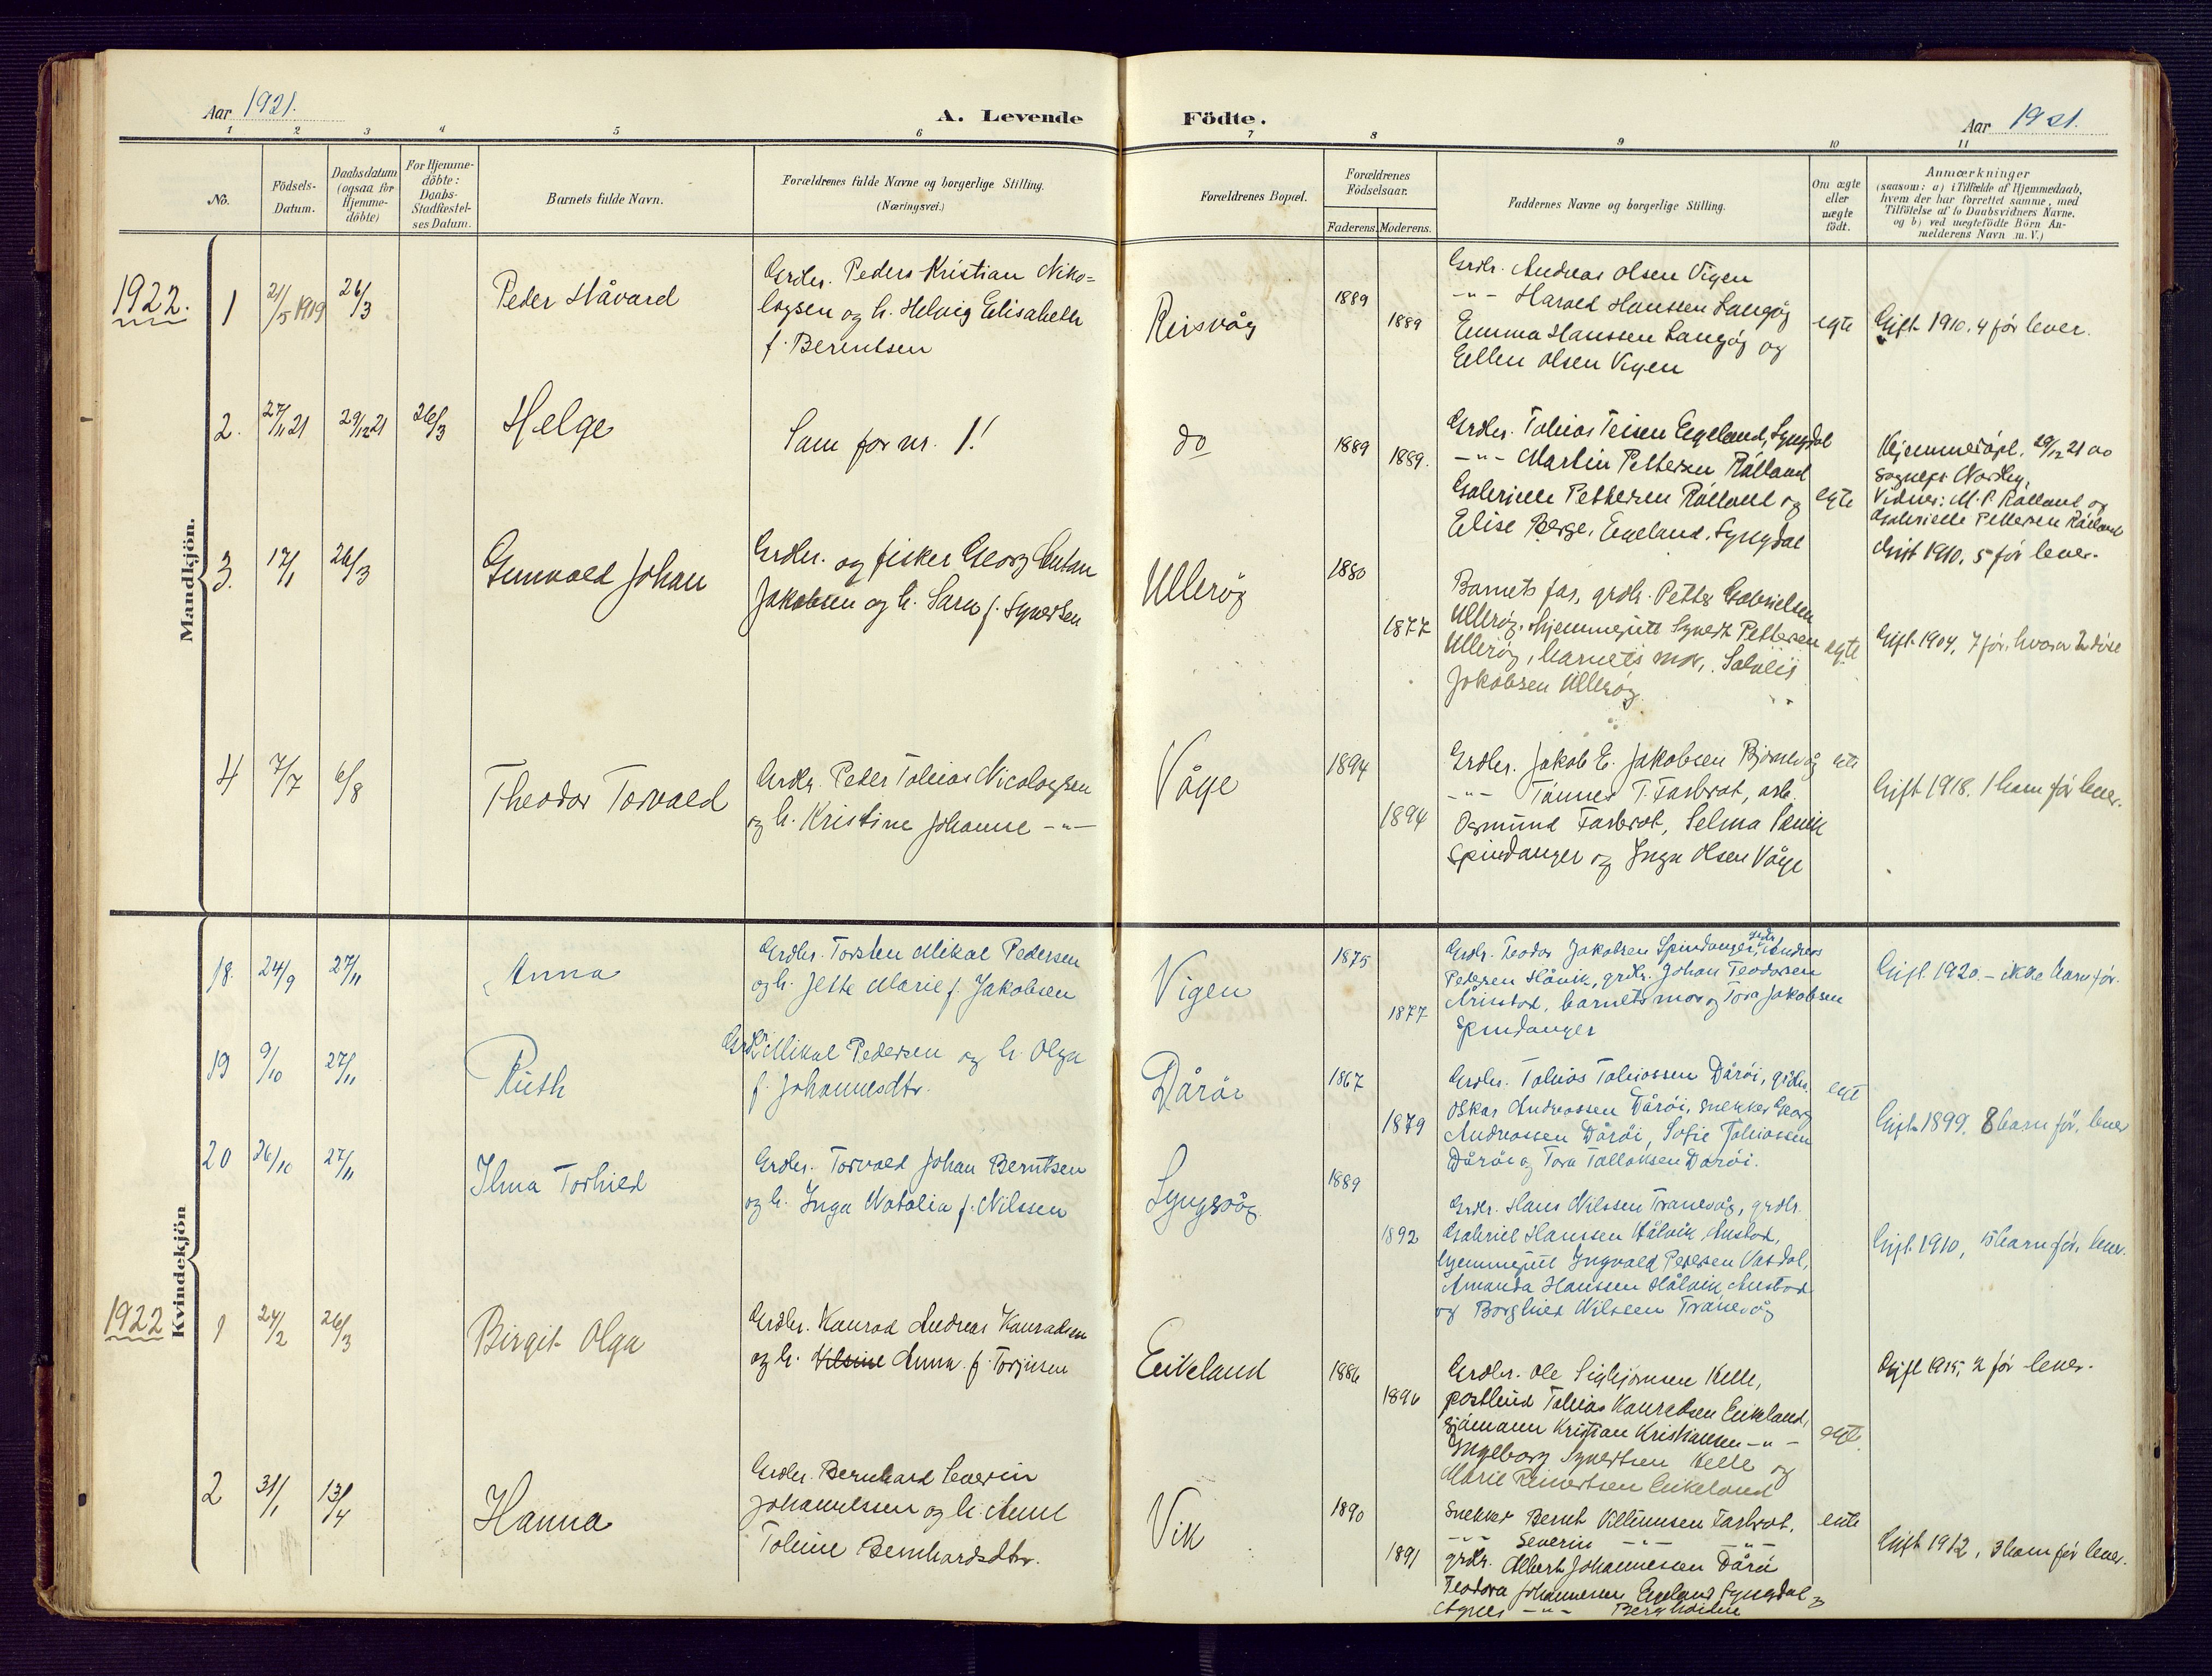 Aar 1921.
A. Levende Födte.
Aar 1921.
1 2 3 4 5 6 7 8 9 10 11
No.
Födsels-
Datum.
Daabsdatum
(ogsaa for
Hjemme-
döbte)
For Hjemme-
döbte:
Daabs-
Stadfæstel-
ses Datum.
Barnets fulde Navn.
Forældrenes fulde Navne og borgerlige Stilling.
(Næringsvei.)
Forældrenes Bopæl.
Forældrenes
Födselsaar.
Faderens. Moderens.
Faddernes Navne og borgerlige Stilling.
Om ægte
eller
uægte
födt.
Anmærkninger
(saasom: a) i Tilfælde af Hjemmedaab,
hvem der har forrettet samme, med
Tilföielse af to Daabsvidners Navne.
og b) ved uægtefödte Börn An-
melderens Navn m. V.)
Mandkjön.
1922.
1
21/5 1919
26/3
Peder Håvard
Grdbr. Peders Kristian Niko=
laysen og h. Helvig Elisabeth
f. Berentsen
Reisvåg
1889
1889
Grdbr. Andreas Olsen Vigen
-"- Harald Hanssen Langøy
Emma Hanssen Langøy og
Ellen Olsen Vigen
egte
Gift 1910. 4 før lever.
2.
27/11 21
29/12 21
26/3
Helge
Sam for nr. 1!
do
1889
1889.
Grdbr. Tobias Teisen Eigeland, Lyngdal
-"- Martin Pettersen Rålland
Gabrielle Pettersen Rålland og
Elise Berge, Eigeland, Lyngdal
egte
Hjemmedøpt. 29/12 21 av
sogneprs Nordby,
Vidner: M. P. Rålland og
Gabrielle Pettersen Rålland
Gift 1910, 5 før lever.
3.
17/1
26/3
Gunvald Johan
Grdbr. og fisker Georg Antan
Jakobsen og h. Sara f. Syvertsen
Ullerøy
1880
1877
Barnets far, grdbr. Petter Gabrielsen
Ullerøy, hjemmegutt Syvert Pettersen
Ullerøy, barnets mor, Solveig
Jakobsen Ullerøy
egte
Gift 1904, 7 før, hvorav 2 døde
4
7/7
6/8
Theodor Torvald
Grdbr. Peder Tobias Nicolaysen
og h. Kristine Johanne -"-
Våge
1894
1894
Grdbr. Jakob E. Jakobsen Bjørnevåg
-"- Tønnes T. Farbrot, arb.
Osmund Farbrot, Selma
Spindanger og Inga Olsen Våge
Gift 1918. 1 barn før lever.
Kvindekjön
18.
24/9
27/11
Anna
Grdbr. Torsten Mikal Pedersen
og h. Jette Marie f. Jakobsen
Vigen
1875
1877
Grdbr. Teodor Jakobsen Spindanger, grdbr. Andreas
Pedersen Håvik, grdbr. Johan Teodorsen
Årisstad, barnets mor og Tora Jakobsen
Spindanger
Gift 1920 - ikke barn før.
19
9/10
27/11
Ruth
Grdbr. Mikal Pedersen og h. Olga
f. Johannesdtr.
Dårøi
1867
1879
Grdbr. Tobias Tobiassen Dårøi, grdbr.
Oskar Andreassen Dårøi, snekker Georg
Andreassen Dårøi, Sofie Tobiassen
Dårøi og Tora Tallaksen Dårøi.
egt
Gift 1899. 8 barn før, lever
20
26/10
27/11
Ilma Torhild
Grdbr. Torvald Johan Berntsen
og h. Inga Natalia f. Nilssen
Lyngsvåg.
1889
1892
Grdbr. Hans Nilssen Tranevåg, grdbr.
Gabriel Hanssen Hålvik, Austad,
hjemmegutt Ingvald Pedersen Vatdal,
Amanda Hanssen Hålvik Austad
og Borghild Nilssen Tranevåg
Gift 1910, 5 barn før, lever.
1922
1
24/2
26/3
Birgit Olga
Grdbr. Konrad Andreas Konradsen
og h. Anna f. Torjusen
Eikeland
1886
1896
Grdbr. Ole Sigbjørnsen Kelle,
postbud Tobias Konradsen Eikeland,
sjømann Kristian Kristiansen -"-
Ingeborg Syvertsen Kelle og
Marie Reinertsen Eikeland
egte
Gift 1915, 2 før lever.
2
31/1
13/4
Hanna
Grdbr. Bernhard Severin
Johannessen og h. Anne
Toline Bernhardsdtr.
Vik
1890
1891
Snekker Bernt Villumsen Farbrot,
-"- Severin -"- -"-
grdbr. Albert Johannessen Dårøi
Teodora Johannesen Eigeland Lyngdal og
Agnes -"- Berghøiden
Gift 1912, 3 barn før lever.